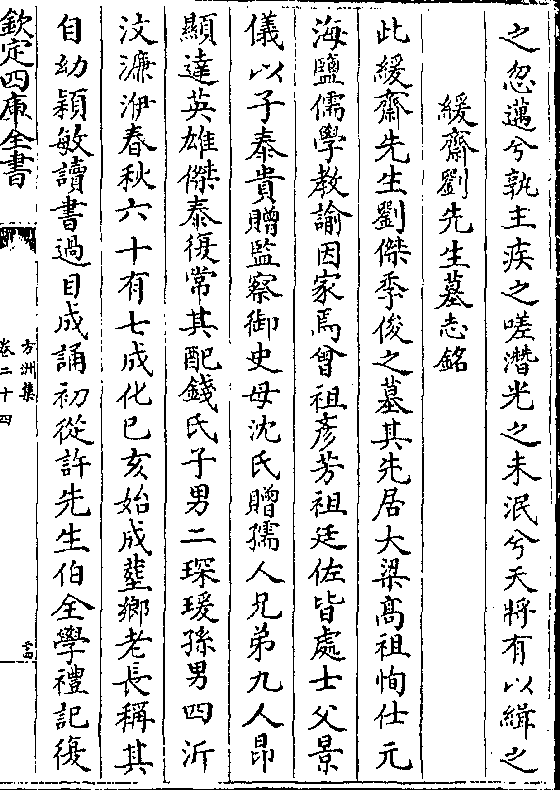 之忽邁兮孰主疾之嗟潛光之未泯兮天將有以緝之
緩齋劉先生墓志銘
此緩齋先生劉傑季俊之墓其先居大梁髙祖恂仕元
海鹽儒學教諭因家焉曾祖彥芳祖廷佐皆處士父景
儀以子泰貴贈監察御史母沈氏贈孺人兄弟九人昂
顯達英雄傑泰復常其配錢氏子男二琛瑗孫男四沂
汶濂洢春秋六十有七成化己亥始成塟鄉老長稱其
自幼穎敏讀書過目成誦初從許先生伯全學禮記復
欽定四庫全書
方洲集
卷二十四